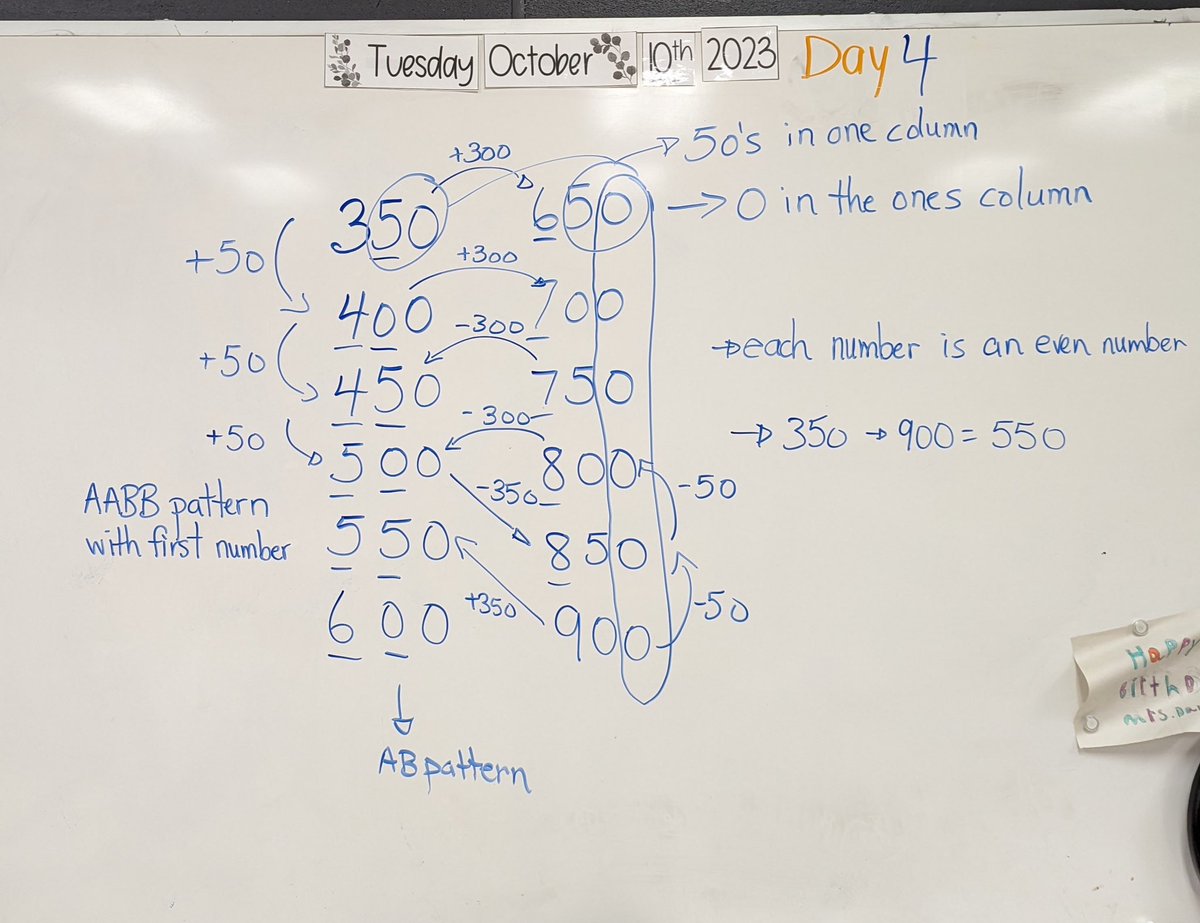 Tuesday October 10th 2023 Day 4
+300 → 50's in one column
350 650 → 0 in the ones column
+50 +300
400 700
-300 → each number is an even number
+50
450 750
-300
+50 → 350 → 900 = 550
500 800
-350 -50
AABB pattern
with first number
550 850
+350 -50
600 900
AB pattern
Happy
mrs.